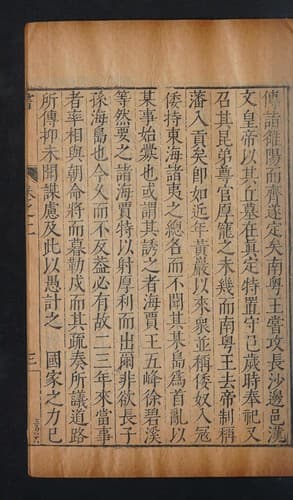 傳諸雒陽而齊遂定矣南粤王嘗攻長沙邊邑漢
文皇帝以其丘墓在眞定特置守邑歲時奉祀又
召其昆弟尊官厚寵之未幾而南粤王去帝制稱
藩入貢矣卽如近年黃嚴以來衆並稱倭奴入冦
倭特東海諸夷之總名而不聞其某島爲首亂以
某事始釁也或謂其誘之者海賈王五峰徐碧溪
等然要之諸海賈特以射厚利而出爾非欲長子
孫海島也今久而不反葢必有故二三年來當事
者率相與朝命將而暮勒戍而其疏奏所議道路
所傳抑未聞謀慮及此以愚計之 國家之力已
書 卷之二 三